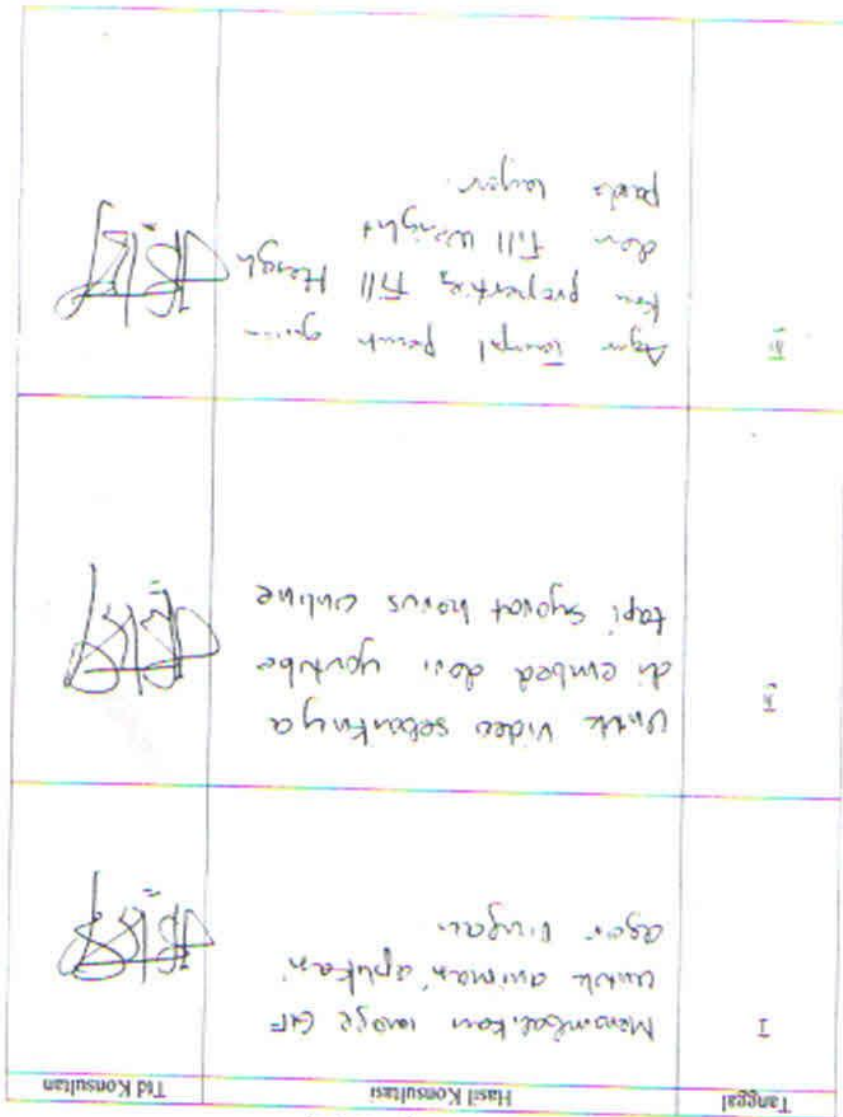 Tanggal Hasil Konsultasi Ttd Konsultan
I
Menambahkan image GIF
untuk animasi aplikasi
agar ringan
II
Untuk video sebaiknya
di embed dari youtube
tapi syarat harus online
III
Agar tampil penuh
properties Fill Heigh
dan Fill Weight
pada layar.